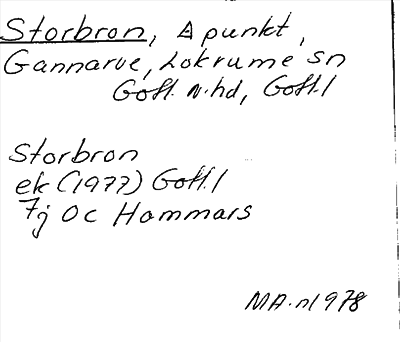 Storbron, △ punkt,
Gannarve, Lokrume sn
Gotl. N.hd, Gotl. l
Storbron
ek (1977) Gotl. l
7j 0c Hammars
MA.n 1978